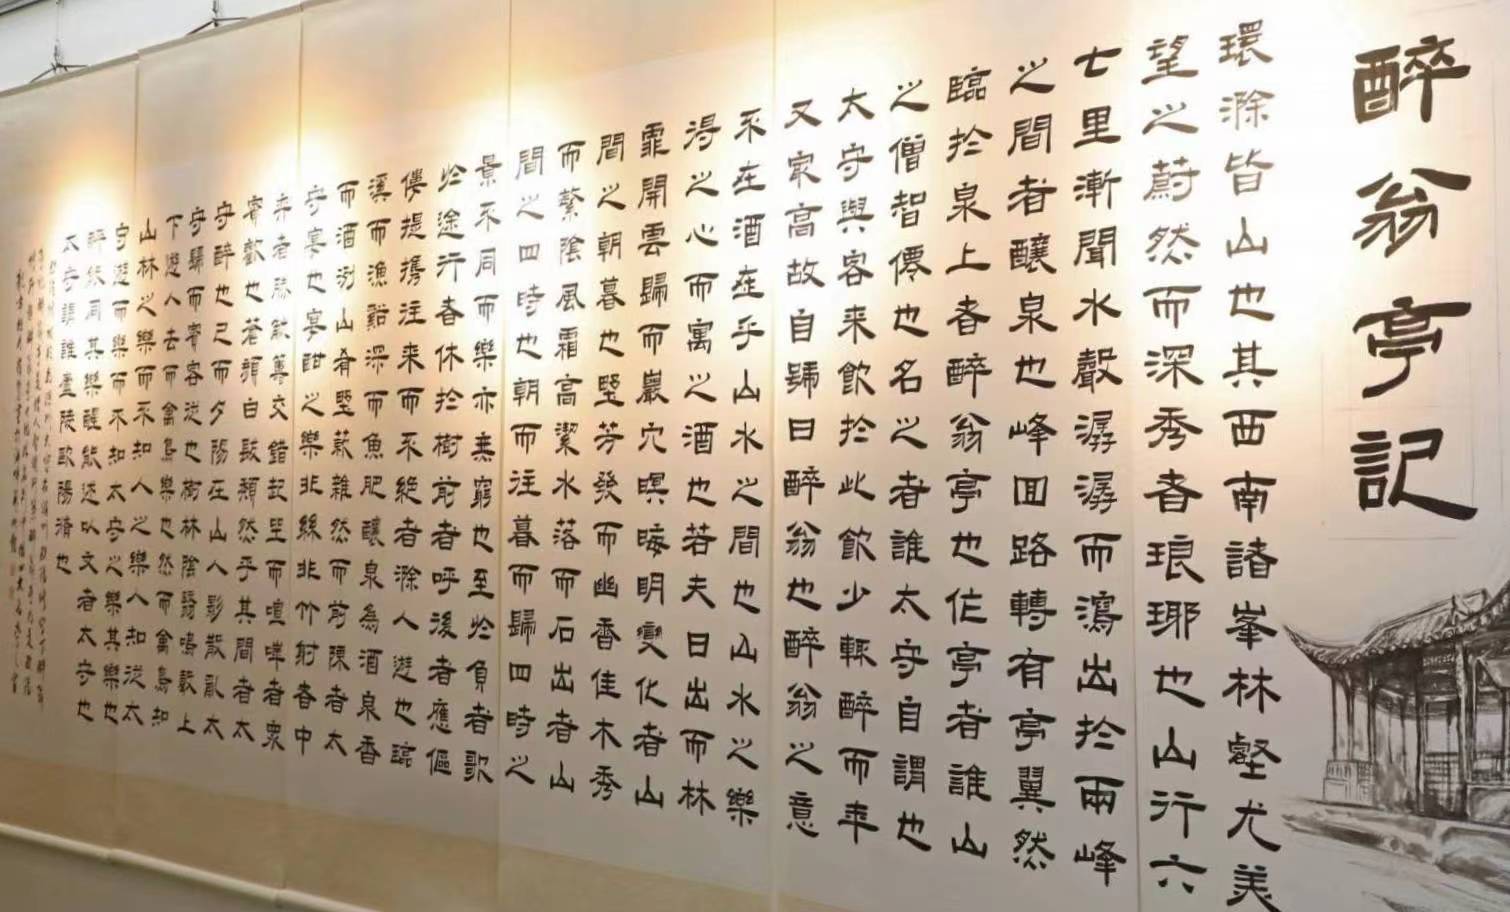 醉翁亭記
環滁皆山也其西南諸峯林壑尤美
望之蔚然而深秀者琅耶也山行六
七里漸聞水聲潺潺而瀉出於兩峰
之間者釀泉也峰回路轉有亭翼然
臨於泉上者醉翁亭也作亭者誰山
之僧智僊也名之者誰太守自謂也
太守與客來飲於此飲少輒醉而年
又最高故自號曰醉翁也醉翁之意
不在酒在乎山水之間也山水之樂
得之心而寓之酒也若夫日出而林
霏開雲歸而巖穴暝晦明變化者山
間之朝暮也野芳發而幽香佳木秀
而繁陰風霜高潔水落而石出者山
間之四時也朝而往暮而歸四時之
景不同而樂亦無窮也至於負者歌
於途行者休於樹前者呼後者應傴
僂提攜往來而不絕者滁人遊也臨
溪而漁谿深而魚肥釀泉為酒泉香
而酒洌山肴野蔌雜然而前陳者太
守宴也宴酣之樂非絲非竹射者中
弈者勝觥籌交錯起坐而喧嘩者眾
賓歡也蒼顏白髮頹然乎其間者太
守醉也已而夕陽在山人影散亂太
守歸而賓客從也樹林陰翳鳴聲上
下遊人去而禽鳥樂也然而禽鳥知
山林之樂而不知人之樂人知從太
守遊而樂而不知太守之樂其樂也
醉能同其樂醒能述以文者太守也
太守謂誰廬陵歐陽脩也